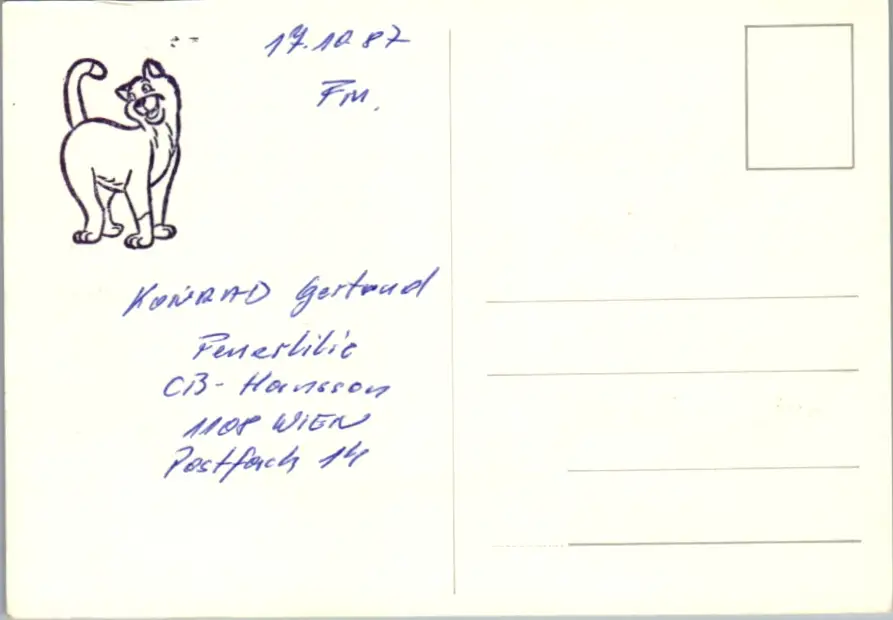 17.10 87
FM.
KONRAD Gertraud
Feuerlilie
CB-Hansson
1108 WIEN
Postfach 14